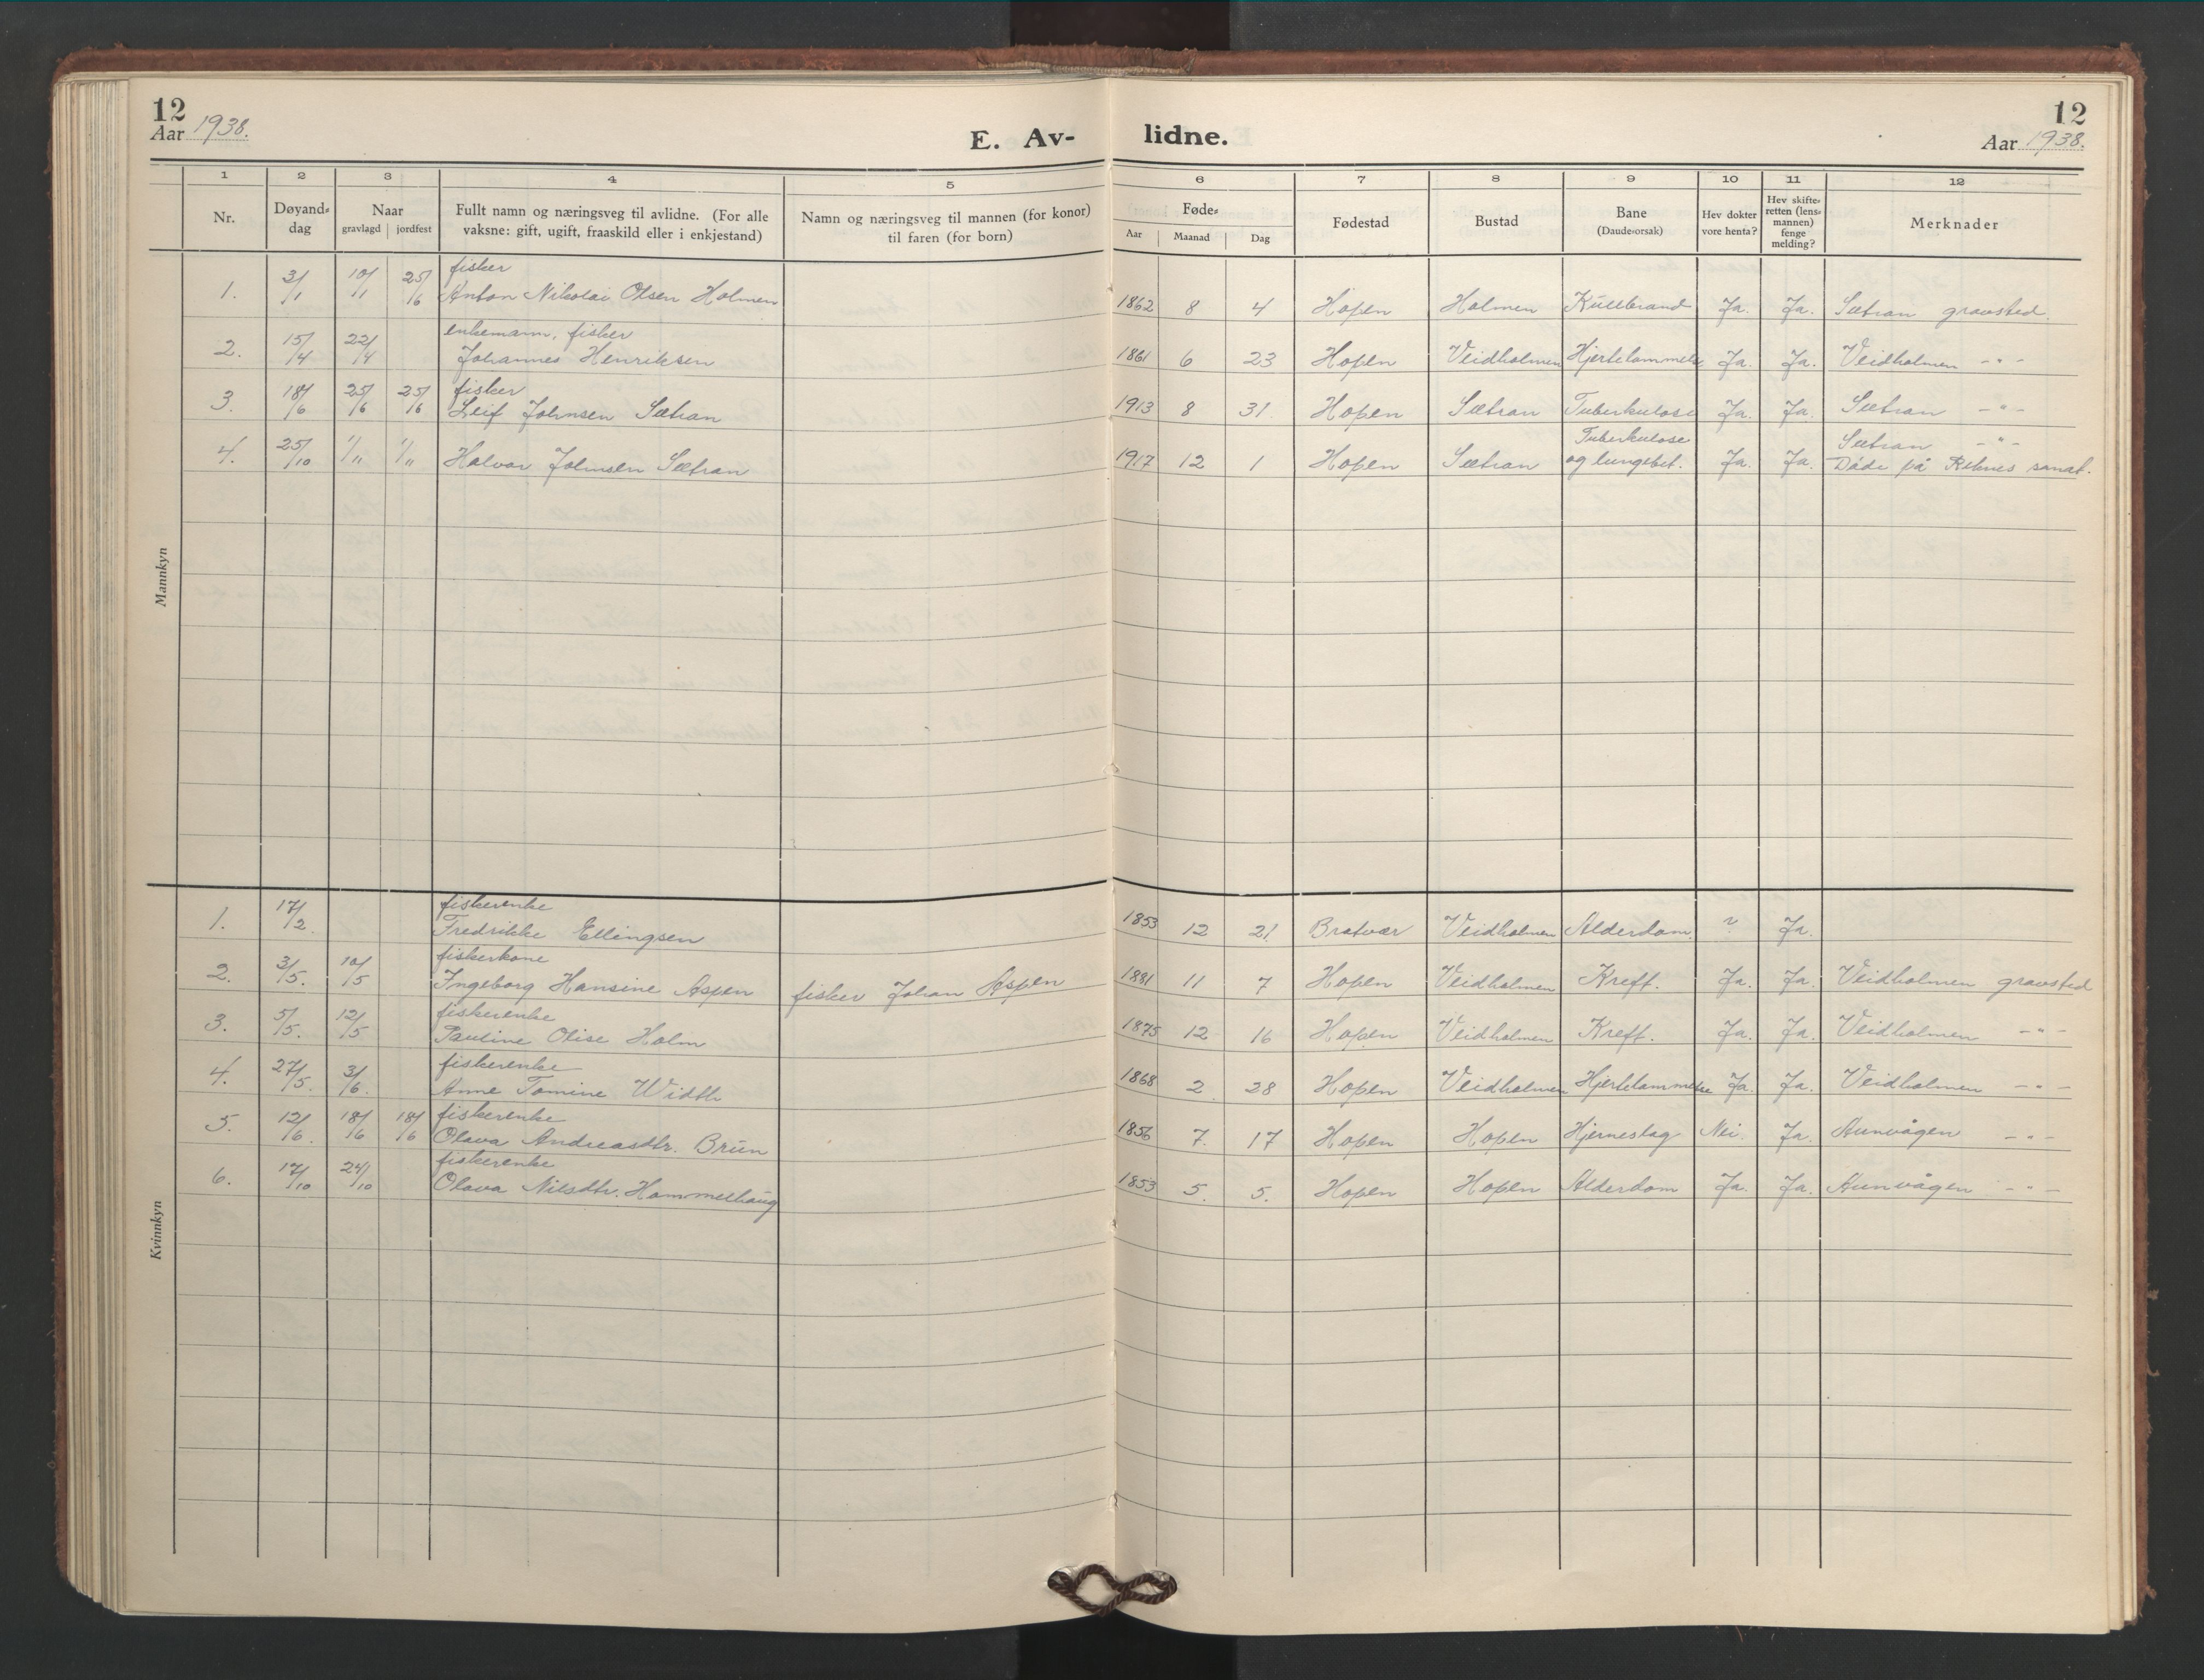 12
Aar 1938.
E. Av-
lidne.
12
Aar 1938.
1 2 3 4 5 6 7 8 9 10 11 12
Nr.
Døyand-
dag
Naar
gravlagd jordfest
Fullt namn og næringsveg til avlidne. (For alle
vaksne: gift, ugift, fraaskild eller i enkjestand)
Namn og næringsveg til mannen (for konor)
til faren (for born)
Føde-
Aar Maanad Dag
Fødestad
Bustad
Bane
(Daudeorsak)
Hev dokter
vore henta?
Hev skifte-
retten (lens-
mannen)
fenge
melding?
Merknader
Mannkyn
fisker
1. 3/1 10/1 25/6 Anton Nikolai Olsen Holmen 1862 8 4 Hopen Holmen Kullbrand Ja. Ja. Sætran gravsted.
enkemann, fisker
2. 15/4 22/4 Johannes Henriksen 1861 6 23 Hopen Veidholmen Hjertelammelse Ja. Ja. Veidholmen -"-
fisker
3. 18/6 25/6 25/6 Leif Johnsen Sætran 1913 8 31. Hopen Sætran Tuberkulose Ja. Ja. Sætran -"-
Tuberkulose Sætran -"-
4. 25/10 1/11 1/11 Halvor Johnsen Sætran 1917 12 1 Hopen Sætran og lungebet. Ja. Ja. Døde på Reknes sanat.
Kvinnkyn
fiskerenke
1. 17/2. Fredrikke Ellingsen 1853 12 21. Bratvær Veidholmen Alderdom. ? Ja.
fiskerkone
2. 3/5. 10/5 Ingeborg Hansine Aspen fisker Johan Aspen 1881 11 7 Hopen Veidholmen Kreft. Ja. Ja. Veidholmen gravsted
fiskerenke
3. 5/5. 12/5 Pauline Olise Holm 1875 12 16 Hopen Veidholmen Kreft. Ja. Ja. Veidholmen -"-
fiskerenke
4. 27/5. 3/6. Anne Tomine Width 1868 2 28 Hopen Veidholmen Hjertelammelse Ja. Ja. Veidholmen -"-
fiskerenke
5. 12/6. 18/6 18/6 Olava Andreasdtr. Brün 1856 7. 17 Hopen Hopen Hjerneslag Nei. Ja. Aunvågen -"-
fiskerenke
6. 17/10 24/10 Olava Nilsdtr. Hammelhaug 1853 5. 5. Hopen Hopen Alderdom Ja. Ja. Aunvågen -"-